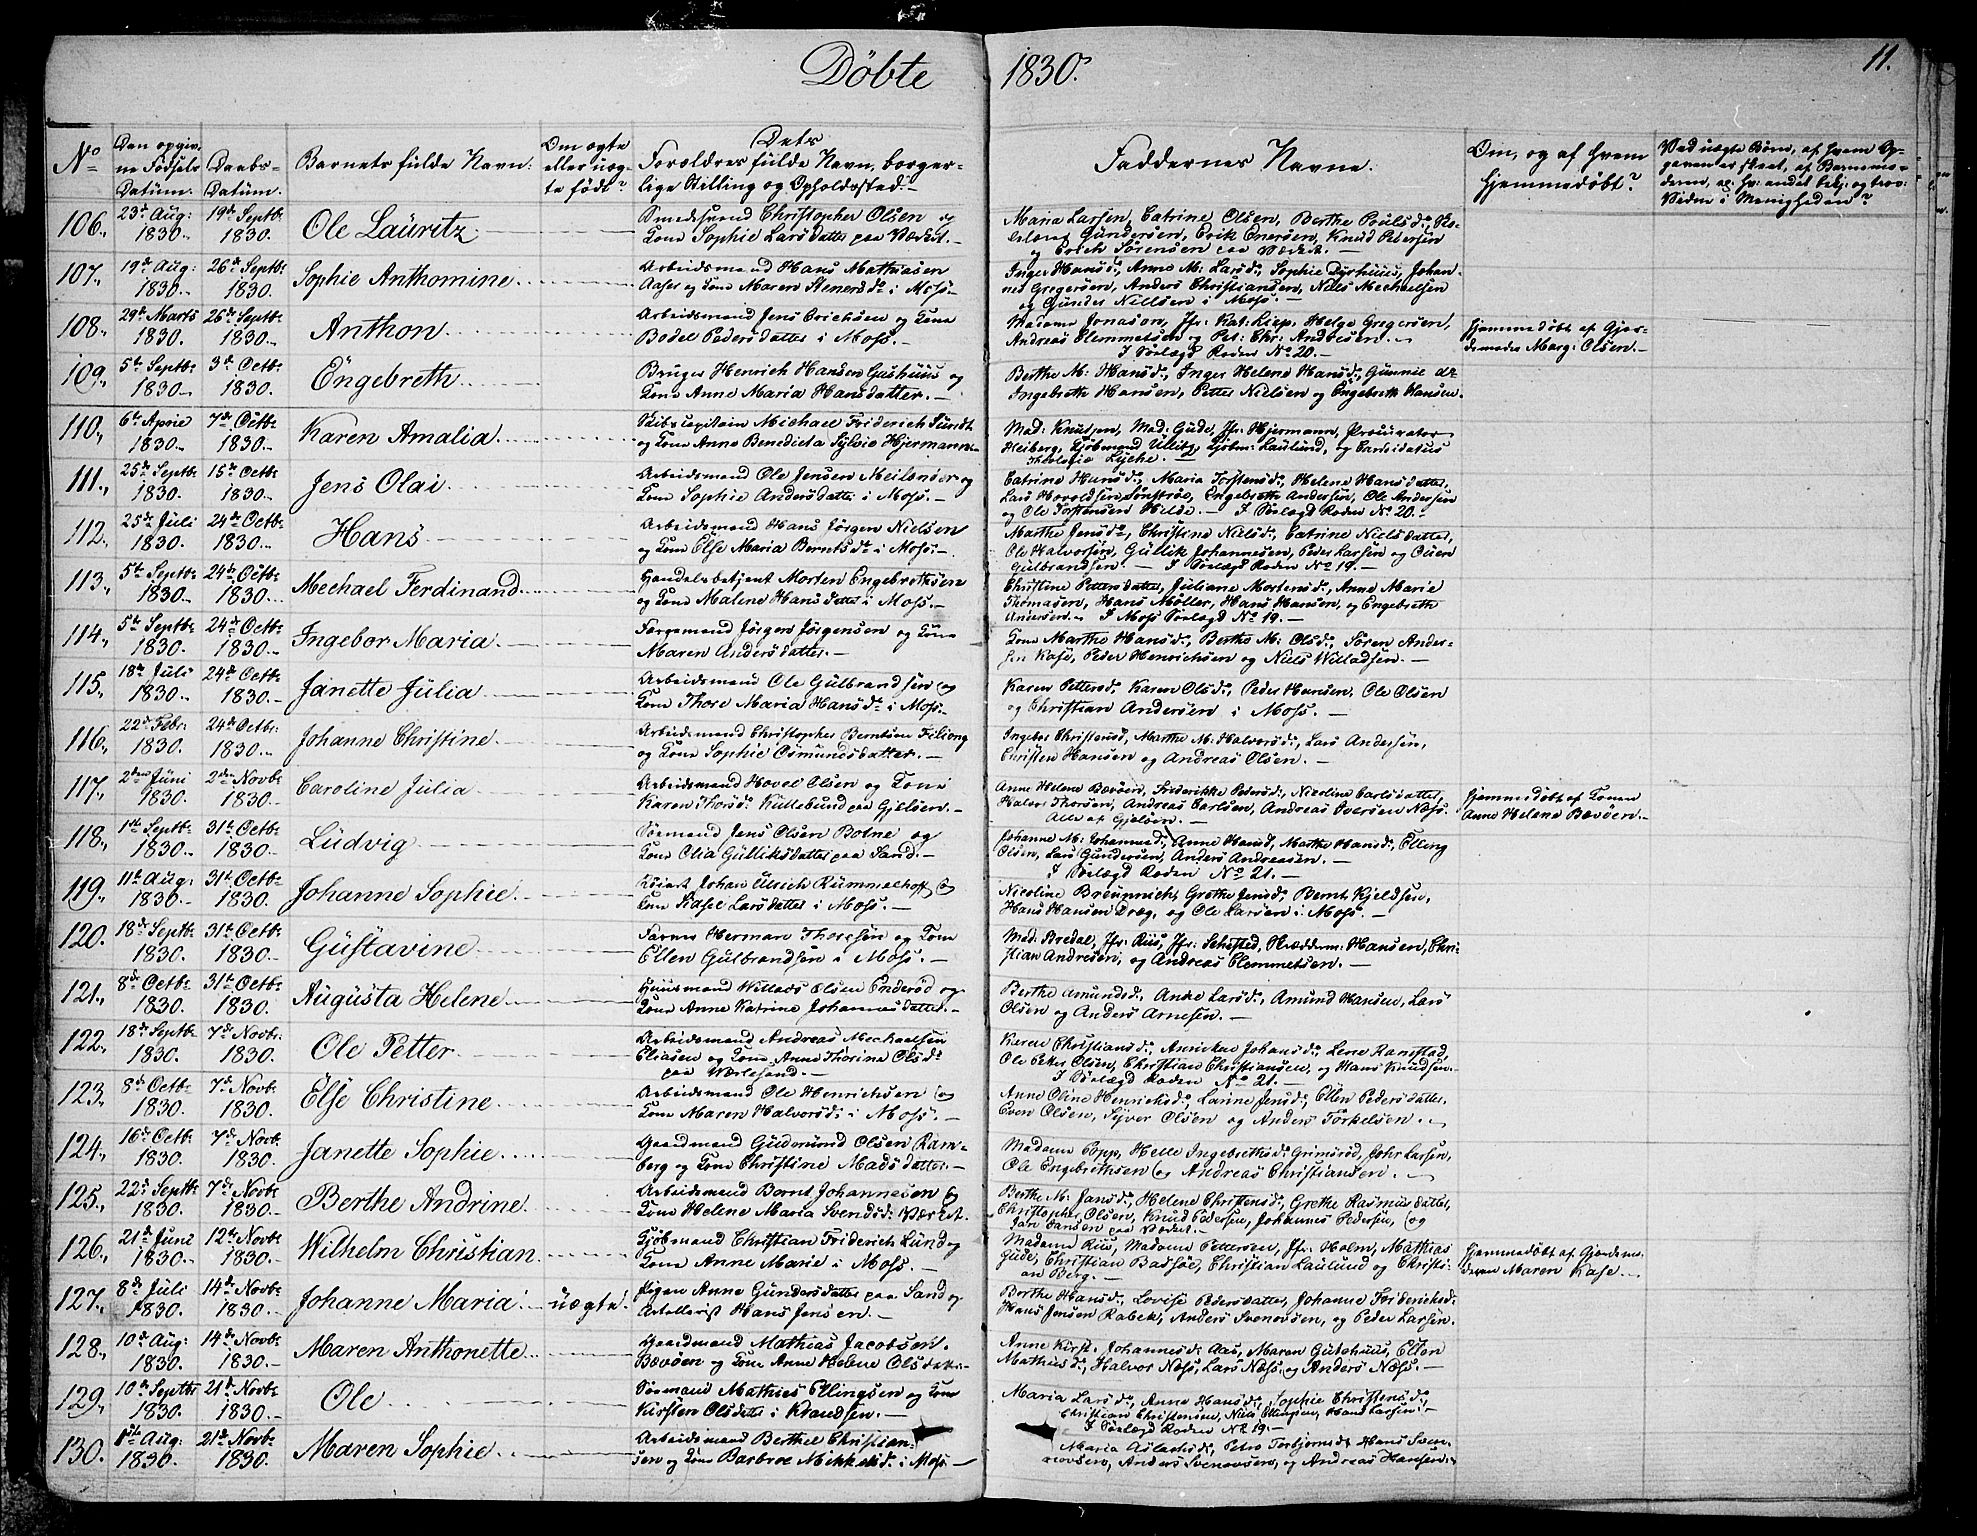 Döbte 1830.
11.
No
Den opgiv-
ne Födsels
Datum.
Daabs-
Datum.
Barnets fulde Navn.
Om ægte
eller uæg-
te födt?
Dets
Forældres fulde Navn, borger-
lige Stilling og Opholdssted.
Faddernes Navne.
Om, og af hvem
hjemmedöbt?
Ved uægte Börn, af hvem Op-
given er skeet, af Barnemo-
deren, og
106., 23de Aug: 1830. 19de Septbr 1830. Ole Lauritz.
Smedsvend Christopher Olsen og
Kone Sophie Larsdatter paa Værket.
Maria Larsen, Catrine Olsen, Berthe Poulsd:,
Gundersen, Erik Enersen, Knud Pedersen
og Erich Sörensen paa Værket.
107., 19de Aug: 1830. 26de Septbr 1830. Sophie Anthomine.
Arbeidsmand Hans Mathiasen
Aases og Kone Maren Stenersdr i Moss.
Inger Hansd:, Anne M: Larsd:, Sophie Dyrhuus, Johan-
nes Gregersen, Anders Christiansen, Niels Mechaelsen
og Gunder Nielsen i Moss.
108., 29de Marts 1830. 26de Septbr 1830. Anthon
Arbeidsmand Jens Erichsen og Kone
Bodel Pedersdatter i Moss.
Madame Jonason, Jfr: Kat: Liep, Helge Gregersen,
Andreas Clemmetsen og Pet: Chr: Andresen.
I Sölægd Roden No 20.
Hjemmedöbt af Gjor-
demoder Marg: Olsen.
109., 5te Septbr 1830. 3de Octbr 1830. Engebreth
Bruger Henrich Hansen Gushuus og
Kone Anne Maria Hansdatter.
Berthe M: Hansd:, Inger Helene Hansd:, Gunnie dr
Ingebreth Hansen, Petter Nielsen og Engebreth Hansen.
110., 6te April 1830. 7de Octbr 1830. Karen Amalia
Skibscapitain Michael Friderich Sundt
og Kone Anne Benedicta Sylvie Hjermann.
Mad: Knutzen, Mad: Gude, Jfr: Hjermann, Procurator
Heiberg, Kjöbmand Ullitz, Kjöbm: Laulund, og Candidatus
Theologie Lyche.
111., 25de Septbr 1830. 15de Octbr 1830. Jens Olai
Arbeidsmand Ole Jensen Meilender og
Kone Sophie Andersdatter i Moss.
Catrine Hansd:, Maria Torstensd:, Helene Hansdatter,
Lars Hovoldsen Sönströe, Engebrethe Andersen, Ole Andersen
og Ole Torstensen Hilde. I Sölægd Roden No 20.
112., 25de Juli 1830. 24de Octbr 1830. Hans
Arbeidsmand Hans Jörgen Nielsen
og Kone Else Maria Berntsdr i Moss.
Marthe Jensdr, Christine Nielsd:, Catrine Nielsdatter,
Ole Halvorsen, Gullik Johannesen, Peder Larsen og Ouen
Gulbrandsen. I Sölægd Roden No 19.
113., 5te Septbr 1830. 24de Octbr 1830. Mechael Ferdinand
Handelsbetjent Morten Engebrethsen
og Kone Malene Hansdatter i Moss.
Christine Pettersdatter, Juliane Mortensd:, Anne Marie
Thomasen, Hans Möller, Hans Hansen, og Engebreth
Andersen. I Moss Sölægd No 19.
114., 5te Septbr 1830. 24de Octbr 1830. Ingebor Maria
Færgemand Jörgen Jörgensen og Kone
Maren Andersdatter.
Kone Marthe Hansd:, Berthe M: Olsd:, Sören Ander-
sen Kase, Peder Henrichsen og Niels Willadsen.
115., 18de Juli 1830. 24de Octbr 1830. Janette Julia
Arbeidsmand Ole Gulbrandsen og
Kone Thore Maria Hansdr i Moss.
Karen Pettersd:, Karen Olsd:, Peder Hansen, Ole Olsen
og Christian Andersen i Moss.
116., 22de Febr: 1830. 24de Octbr: 1830. Johanne Christine
Arbeidsmand Christopher Berntsen Filiong
og Kone Sophie Osmundsdatter.
Ingebor Christensd, Marthe M: Halvorsd:, Lars Andersen,
Christen Hansen og Andreas Olsen.
117., 2den Juni 1830. 2den Novbr 1830. Caroline Julia
Arbeidsmand Hovel Olsen og Kone
Karen Thorsd: Kullebund paa Gjelöen.
Anne Helene Bevöen, Friderikke Pedersd:, Nicoline Carlsdatter,
Halvor Thorsen, Andreas Carlsen, Andreas Iversen Næss.
Alle af Gjelöen.
Hjemmedöbt af Konen
Anne Helene Bævöen.
118., 1ste Septbr 1830. 31te Octbr 1830. Ludvig
Sömand Jens Olsen Botne og
Kone Olia Gulliksdatter paa Sand.
Johanne M: Johannesd:, Anne Hansd, Marthe Hansd:, Elling
Olsen, Lars Gundersen, Anders Andreasen.
I Sölægd Roden No 21.
119., 11te Aug: 1830. 31te Octbr 1830. Johanne Sophie
Johan Ulrich Rummelhoff og
Kone Kasee Larsdatter i Moss.
Nicoline Breunnicke, Grethe Jensd:, Bernt Kjeldsen,
Hans Hansen Dræg, og Ole Larsen i Moss.
120. 18de Septbr 1830. 31te Octbr 1830. Gustavine
Farver Herman Thoresen og Kone
Ellen Gulbrandsen i Moss.
Mad: Bredal, Jfr: Riis, Jfr: Sehested, Skrædderm: Hansen, Chri-
stian Andresen, og Andreas Clemmetsen.
121., 8de Octbr 1830. 31te Octbr 1830. Augusta Helene
Huusmand Willads Olsen Enderöd og
Kone Anne Katrine Johannesdatter.
Berthe Amundsd:, Anne Larsd:, Amund Hansen, Lars
Olsen og Anders Arnesen.
122., 18de Septbr 1830. 7de Novbr: 1830. Ole Petter
Arbeidsmand Andreas Mechaelsen
Eliasen og Kone Anne Thorine Olsdr
paa Wærlesand.
Karen Christiansd:, Anniken Johansd:, Lene Ramstad,
Ole Peter Olsen, Christian Christiansen, og Hans Knudsen.
I Sölægd Roden No 21.
123., 8de Octbr 1830. 7de Novbr 1830. Else Christine
Arbeidsmand Ole Henrichsen og
Kone Maren Halvorsd: i Moss.
Anne Oline Henriksd:, Larine Jensd:, Ellen Pedersdatter,
Even Olsen, Syver Olsen og Anders Torkelsen.
124., 16de Octbr 1830. 7de Novbr 1830. Janette Sophie
Gaardmand Gudmund Olsen Ram-
berg og Kone Christine Madsdatter.
Madame Popp, Helle Ingebrethsd: Grimsröd, Johr Larsen,
Ole Engebrethsen og Andreas Christiansen.
125., 22de Septbr 1830. 7de Novbr 1830. Berthe Andrine
Arbeidsmand Bernt Johannesen og
Kone Helene Maria Svendsd: Værket.
Berthe M: Jansd:, Helene Christensd:, Grethe Rasmusdatter,
Christopher Olsen, Knud Pedersen, Johannes Pedersen, og
Jan Jansen paa Værket.
126., 21de Juni 1830. 12te Novbr 1830. Wilhelm Christian.
Kjöbmand Christian Friderich Lund og
Kone Anne Marie i Moss.
Madame Riis, Madame Pettersen, Jfr: Holm, Mathias
Gude, Christian Basöe, Christian Laulund og Christi-
an Berg.
Hjemmedöbt af Gjordemo-
deren Maren Kase.
127., 8de Juli 1830. 14de Novbr 1830. Johanne Maria. uægte!
Pigen Anne Gundersdatter paa Sand og
Artellerist Hans Jensen.
Berthe Hansd:, Lovise Pedersdatter, Johanne Friderichsd:
Hans Jensen Rabek, Anders Svendsen, og Peder Larsen.
128., 10de Aug: 1830. 14de Novbr 1830. Maren Anthonette
Gaardmand Mathias Jacobsen
Bævöen og Kone Anne Helene Olsdatter.
Anne Kirst: Johannesd: Aas, Maren Gutehuus, Ellen
Mathiasd:, Halvor Næss, Lars Næss og Anders Næss.
129., 10de Septbr 1830. 21de Novbr 1830. Ole
Sömand Mathies Ellingsen og Kone
Kirsten Olsdatter i Krandsen.
Maria Larsd:, Anne Hansd:, Sophie Christensd:,
Christian Christensen, Niels Ellingsen, Hans Larsen.
I Sölægd Roden No 19.
130. 1ste Aug: 1830. 21de Novbr 1830. Maren Sophie
Arbeidsmand Berthel Christian-
sen og Kone Barbroe Mikkelsd. i Moss
Maria Aslaksd:, Petro Torbjörnsd: Hans Sven-
novsen, Anders Svenovsen, og Andreas Hansen.